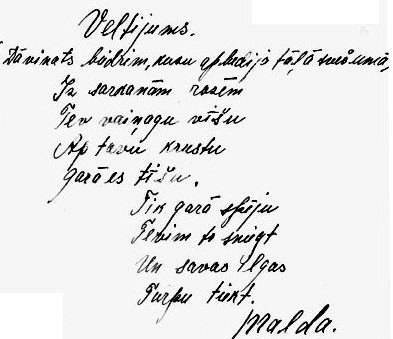 Veltijums.
Dāvināts biedrim, kuru apbedīja tāļā svešumā,
Iz sarkanām rozēm
Tev vaiņagu vīšu
Ap tavu krustu
garā es tīšu.
Tik garā spēju
Tevim to sniegt
Un savas ilgas
Turpu tiekt.
Malda.